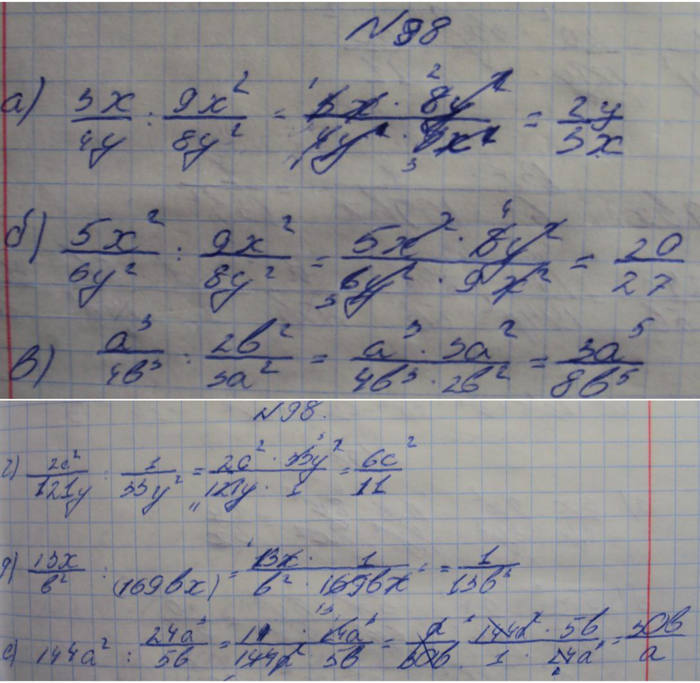 №98
а) 3x/4y : 9x²/8y² = 3x · 8y²/4y · 9x² = 2y/3x
б) 5x²/6y² : 9x²/8y² = 5x² · 8y²/6y² · 9x² = 20/27
в) a³/4b³ : 2b²/3a² = a³ · 3a²/4b³ · 2b² = 3a⁵/8b⁵
№98.
г) 2c²/121y : 1/33y² = 2c² · 33y²/121y · 1 = 6c²/11
д) 13x/b² : (169bx) = 13x · 1/b² · 169bx = 1/13b³
е) 144a² : 24a³/5b = 144a² · 5b/1 · 24a³ = 30b/a